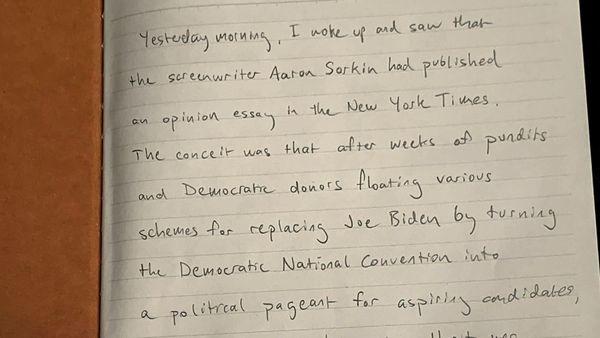 Yesterday morning, I woke up and saw that
the screenwriter Aaron Sorkin had published
an opinion essay in the New York Times.
The conceit was that after weeks of pundits
and Democratic donors floating various
schemes for replacing Joe Biden by turning
the Democratic National Convention into
a political pageant for aspiring candidates,